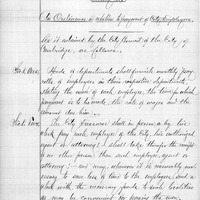 An Ordinance in relation to payment of City Employees.
Be it ordained by the City Council of the City of
Cambridge, as follows.
Sect. One. Heads of departments shall furnish monthly pay
rolls of employees in their respective departments,
stating the name of each employee, the time for which
payment is to be made, the rate of wages and the
amount due him.
Sect. Two. The City Treasurer shall in person or by his
clerk pay each employee of the City, his authorized
agent or attorney; shall take therefor the receipt
no other person than such employee, agent or
attorney; and may, whenever it is reasonably
necessary to save loss of time to the employees, send a
clerk with the necessary funds to such localities
as may be convenient for paying the men.